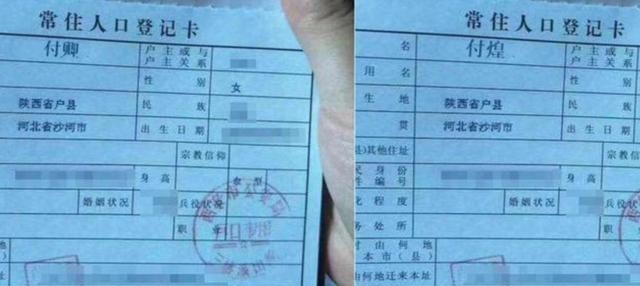 常住人口登记卡
付卿
户主或与
户主关系
性别
女
陕西省户县
民族
河北省沙河市
出生日期
宗教信仰
身高
血型
婚姻状况
兵役状况
职业
常住人口登记卡
名
付煌
户主或与
户主关系
用名
性别
生地
陕西省户县
民族
贯
河北省沙河市
出生日期
县)其他住址
宗教信仰
民身份
件编号
身高
化程度
婚姻状况
务处所
时由何地
本市(县)
由何地迁来本址